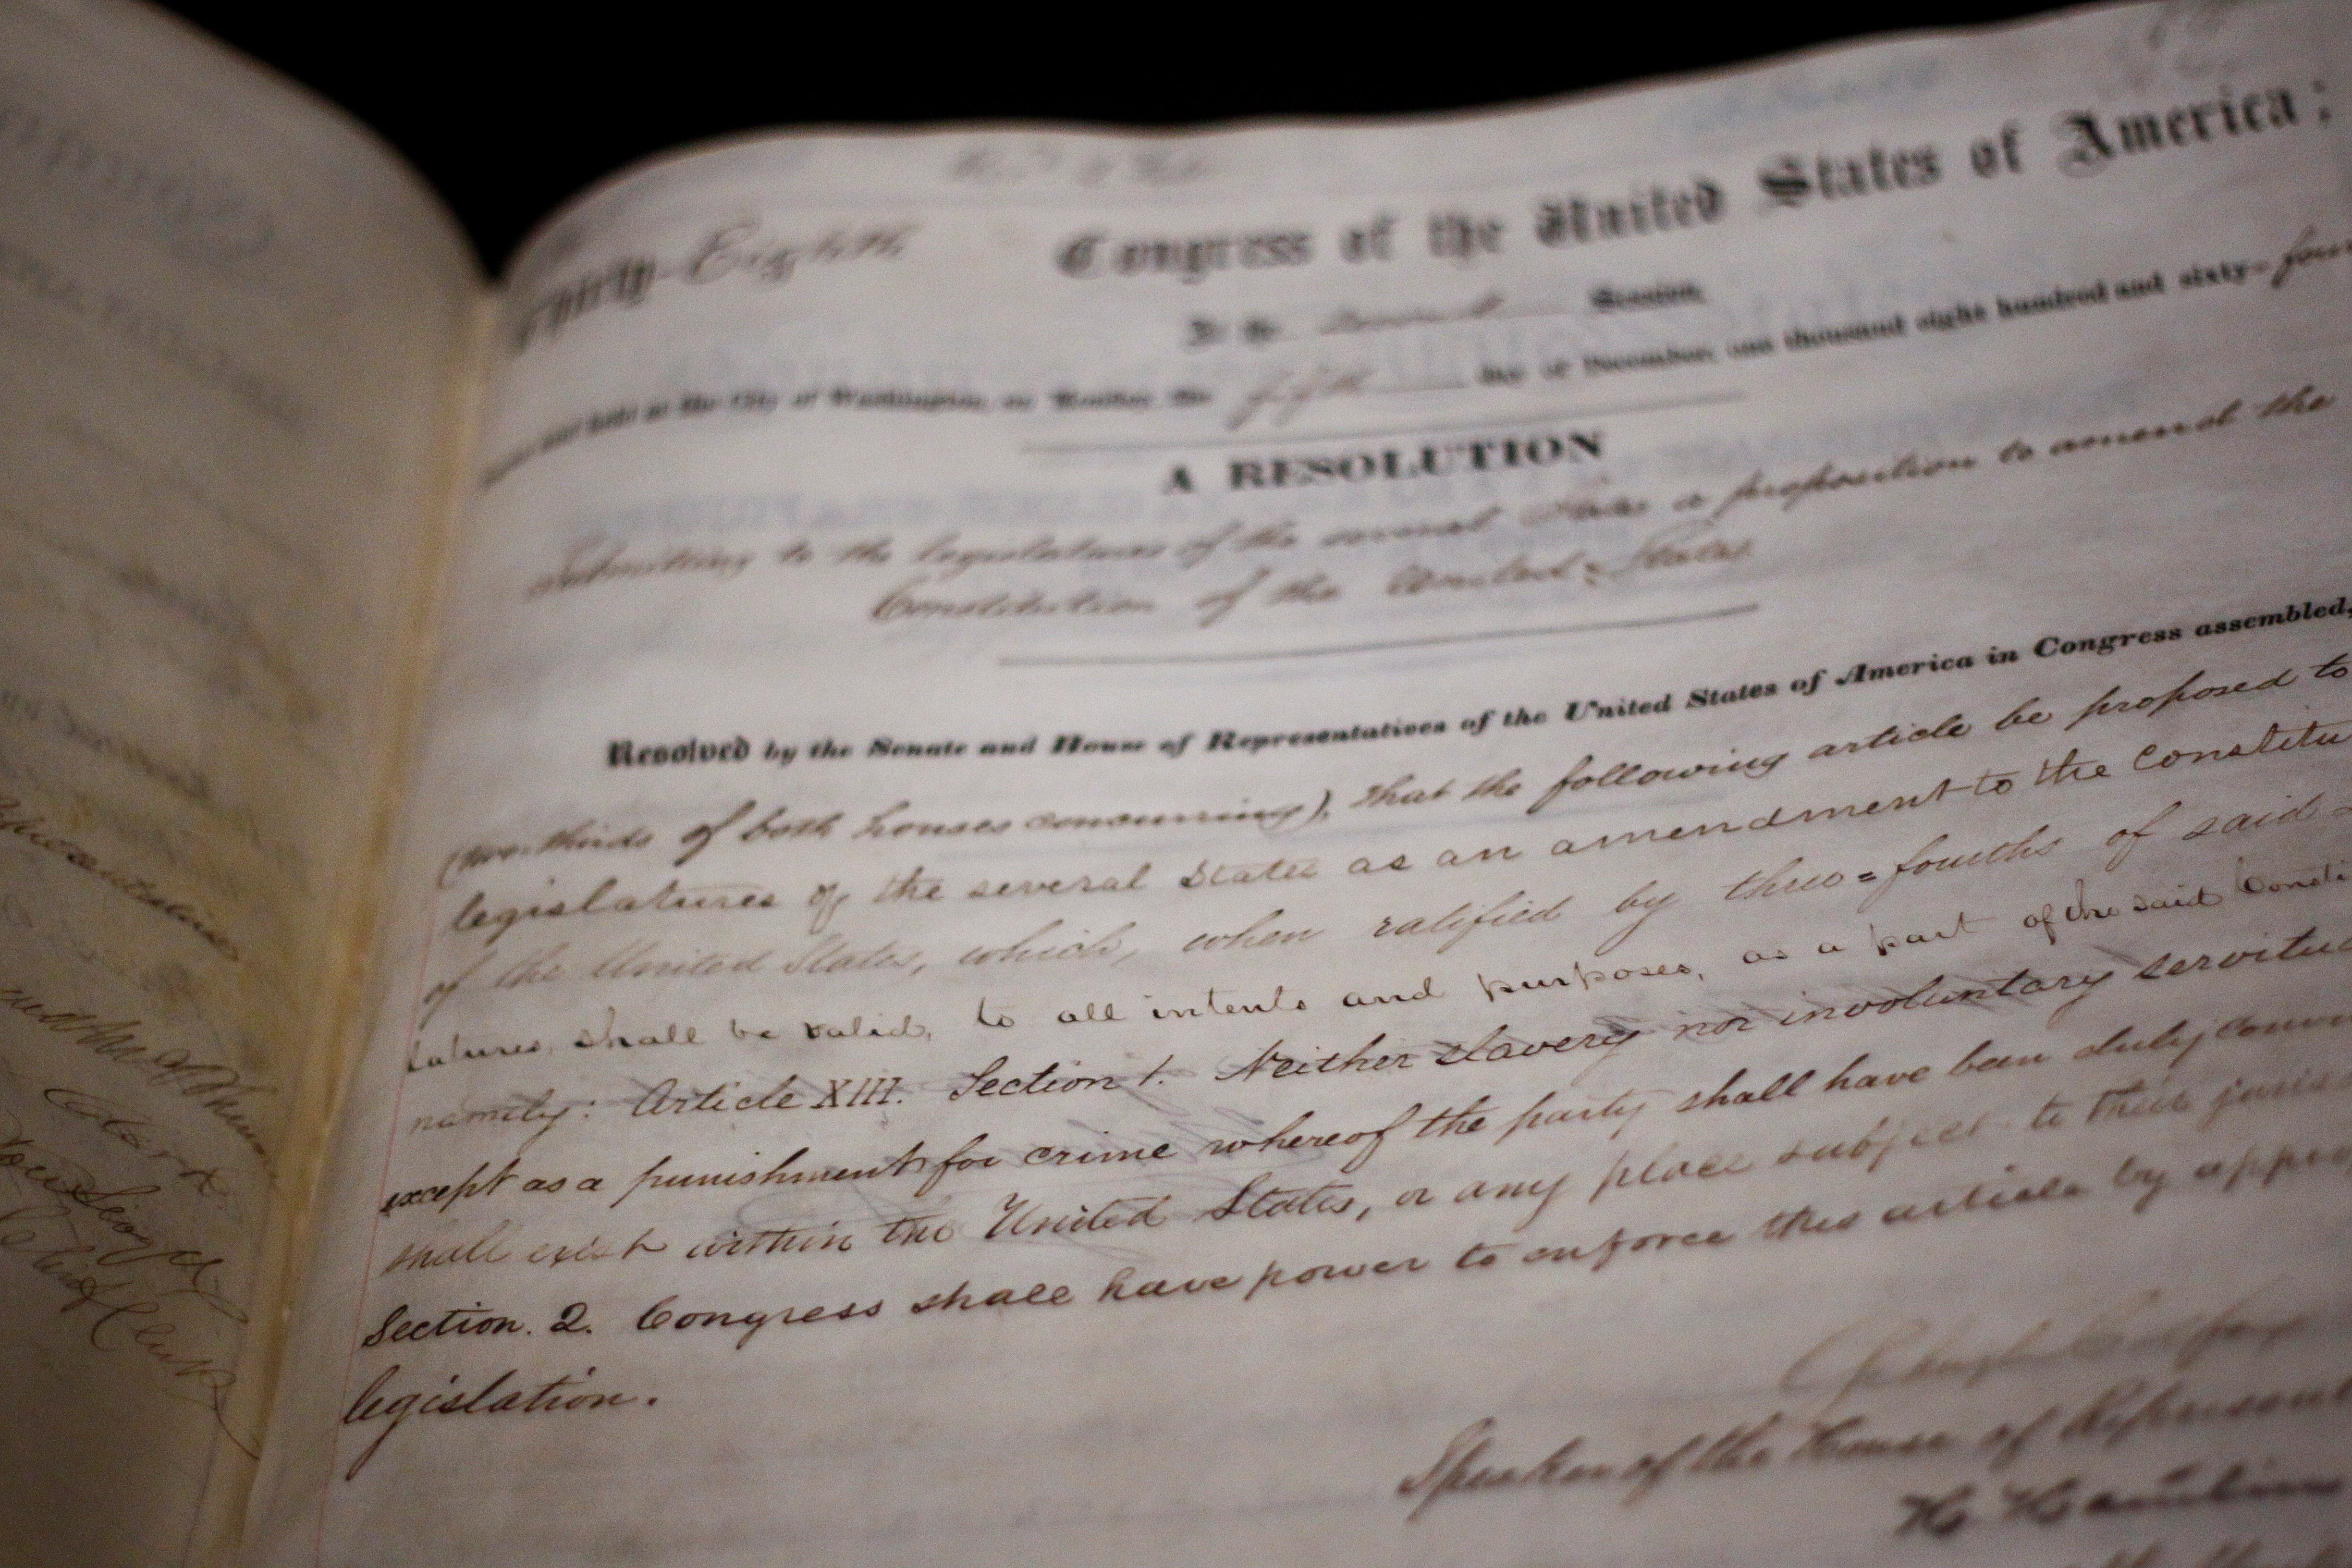 Thirty-Eighth Congress of the United States of America;
At the Second Session,
held at the City of Washington, on Monday, the fifth day of December, one thousand eight hundred and sixty-four
A RESOLUTION
Submitting to the legislatures of the several States a proposition to amend the
Constitution of the United States.
Resolved by the Senate and House of Representatives of the United States of America in Congress assembled,
(two-thirds of both houses concurring), That the following article be proposed to
legislatures of the several States as an amendment to the Constitu
of the United States, which, when ratified by three-fourths of said
latures, shall be valid, to all intents and purposes, as a part of the said Consti
namely: Article XIII. Section 1. Neither slavery nor involuntary servitu
except as a punishment for crime whereof the party shall have been duly conv
shall exist within the United States, or any place subject to their juris
Section. 2. Congress shall have power to enforce this article by appro
legislation.
Speaker of the House of Represent
H. Hamlin